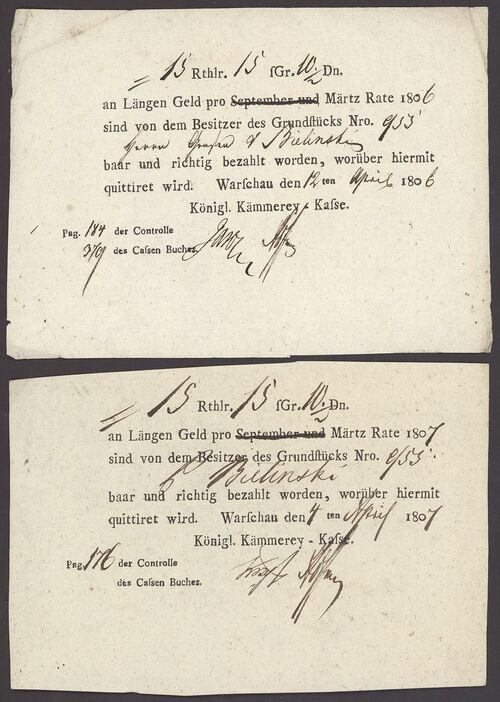 15 Rthlr. 15 ſGr. 10 ½ Dn.
an Längen Geld pro September und Märtz Rate 1806
ſind von dem Beſitzer des Grundſtücks Nro. 955
Herrn Grafen v Bielinski
baar und richtig bezahlt worden, worüber hiermit
quittiret wird. Warſchau den 12 ten April 1806
Königl. Kämmerey-Kaſſe.
Pag. 184 der Controlle
379 des Caſſen Buches.
15 Rthlr. 15 ſGr. 10 ½ Dn.
an Längen Geld pro September und Märtz Rate 1807
ſind von dem Beſitzer des Grundſtücks Nro. 955
Bielinski
baar und richtig bezahlt worden, worüber hiermit
quittiret wird. Warſchau den 4 ten April 1807
Königl. Kämmerey-Kaſſe.
Pag. 176 der Controlle
des Caſſen Buches.